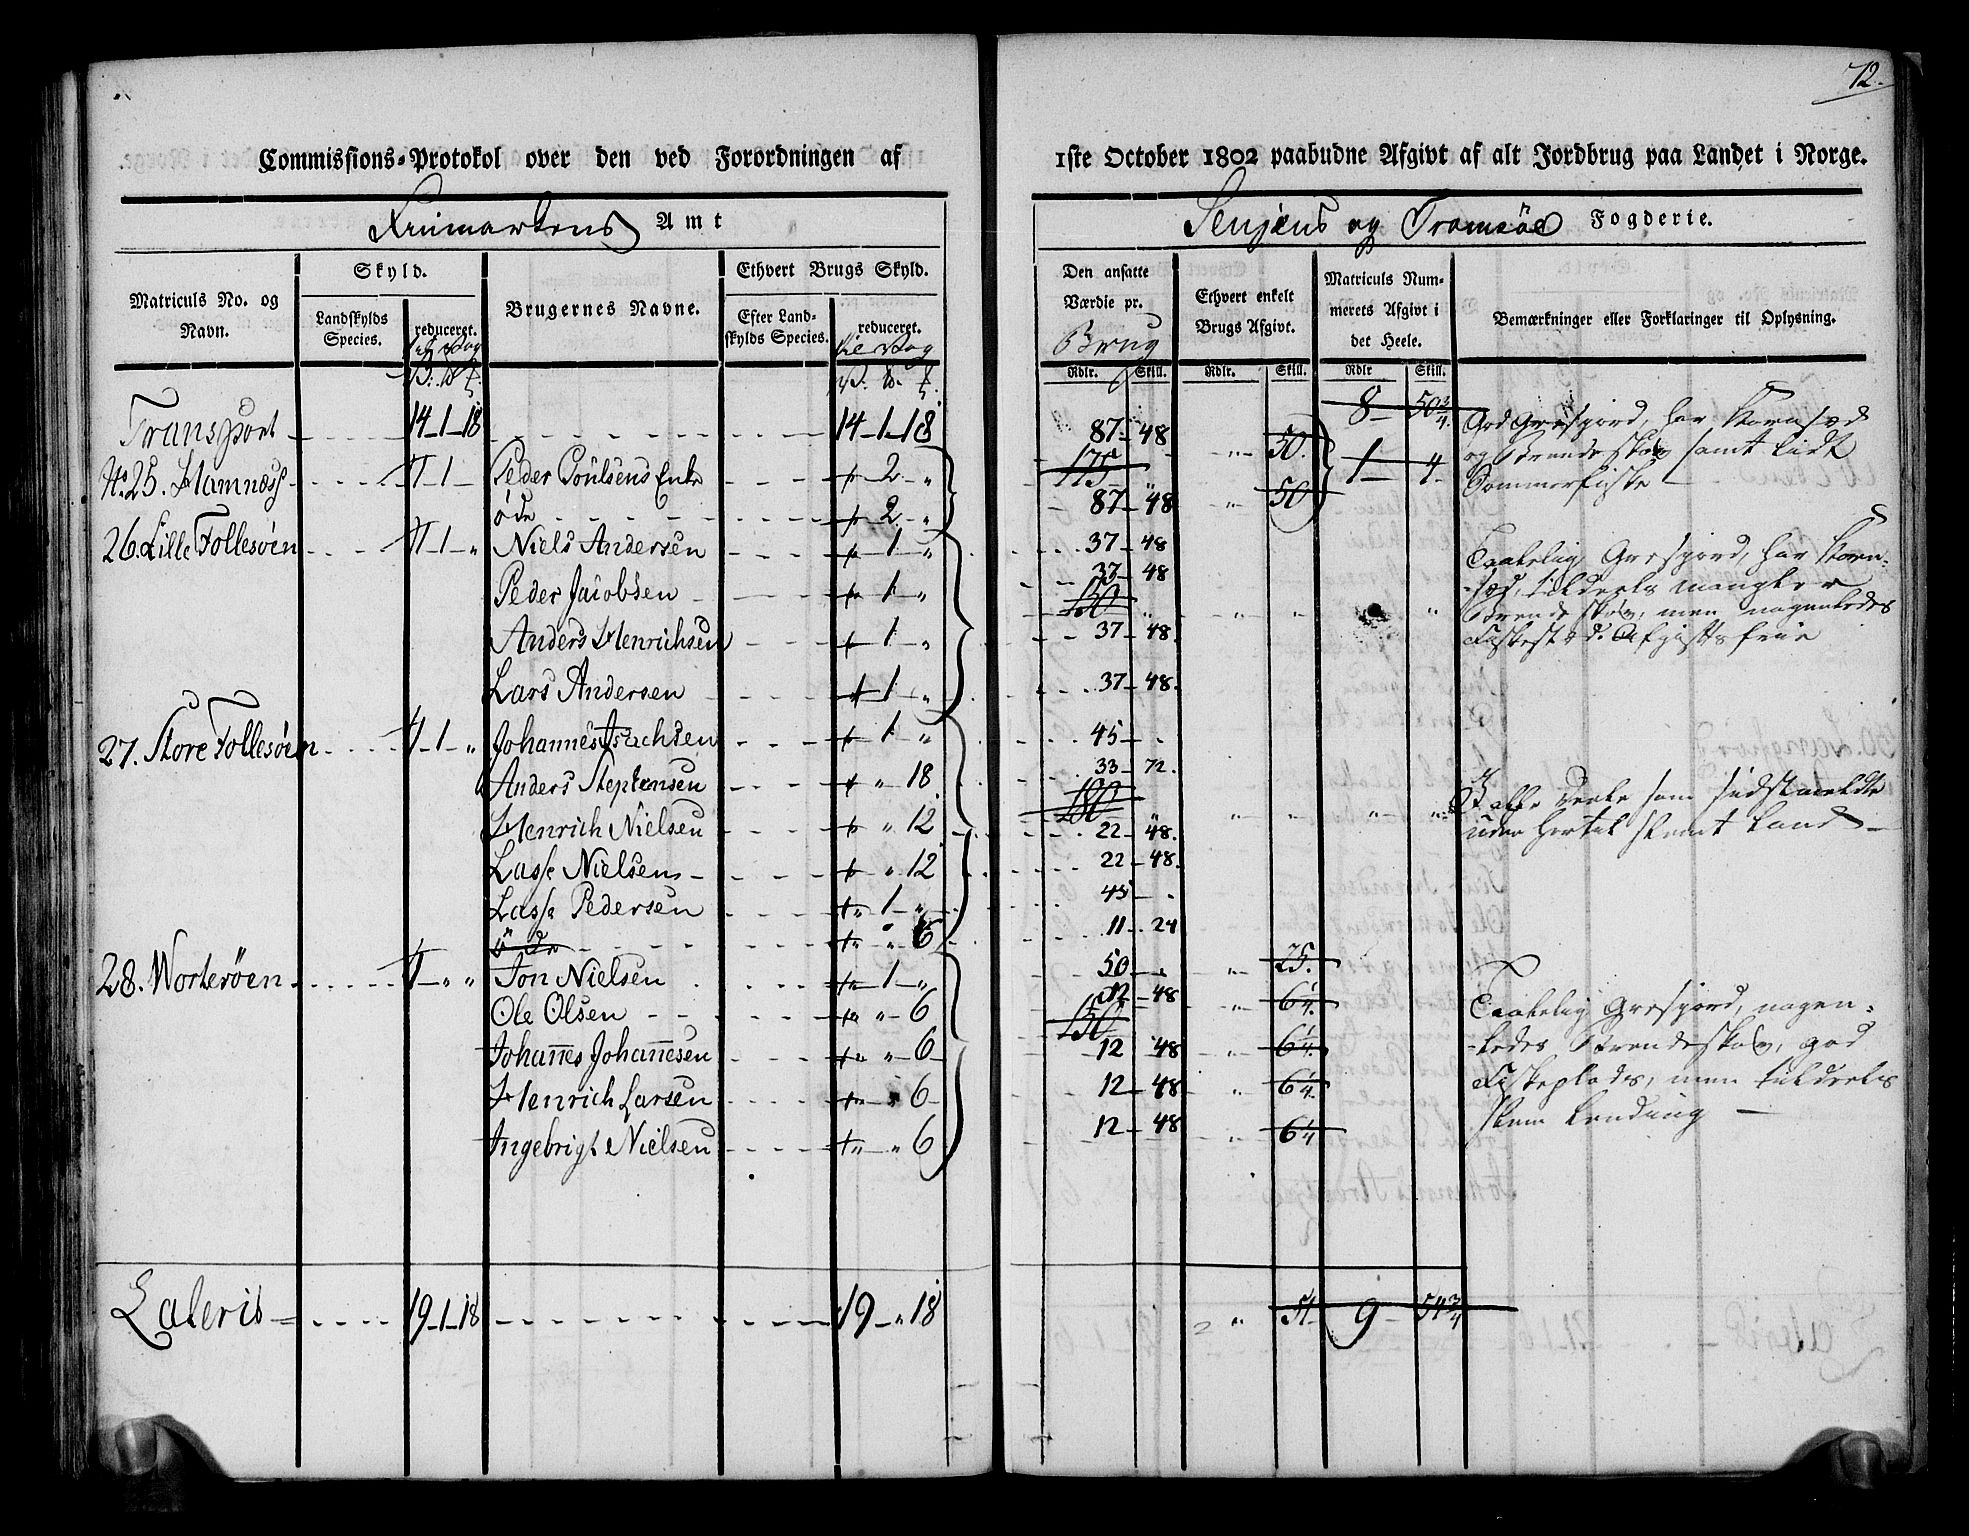 72.
Commissions-Protokol over den ved Forordningen af
1ste October 1802 paabudne Afgivt af alt Jordbrug paa Landet i Norge.
Finmarkens Amt
Senjens og Tromsöe Fogderie.
Matriculs No. og Navn.
Skyld.
Landskylds Species.
reduceret.
Brugernes Navne.
Ethvert Brugs Skyld.
Efter Landskylds Species.
reduceret.
Den ansatte Værdie pr. Brug
Rdlr. Skill.
Ethvert enkelt Brugs Afgivt.
Rdlr. Skill.
Matriculs Nummerets Afgivt i det Heele.
Rdlr Skill.
Bemærkninger eller Forklaringer til Oplysning.
Transport 14-1-18 14-1-18 8 50 3/4
No. 25. Hamnæss 1 Peder Poulsens Enke 2 „ 87 48 „ 50. 1 4
175 „
øde 2 „ 87 48 „ 50
God Græsjord, har Kornsæd
og Brændeskov samt lidt
Sommerfiske
26. Lille Follesøen 1 „ Niels Andersen 1 „ 37 48
Peder Jacobsen 1 „ 37 48
150 „ „ „ „
Anders Henrichsen 1 „ 37 48.
Lars Andersen 1 „ 37 48.
Taalelig Græsjord, har Korn-
sæd, tildeels mangler
Brændeskov, men nogenledes
Fiskested. Afgiftsfrie
27. Store Follesøen 1 „ Johannes Isachsen 1 „ 45 -
Anders Stephensen „ 18 33 72.
180 „ „ „ „ „
Henrich Nielsen „ 12 22 48.
Lasse Nielsen „ 12 22 48.
Lasse Pedersen 1 „ 45 -
öde „ 6 11 24
I alle Deele som sidstmeldte
uden hertil slemt Land
28. Vorterøen „ „ Jon Nielsen 1 „ 50 - „ 25.
Ole Olsen „ 6 12 48 „ 6 1/4
150
Johannes Johannesen „ 6 12 48 „ 6 1/4
Henrich Larsen „ 6 12 48 „ 6 1/4
Ingebrigt Nielsen „ 6 12 48 „ 6 1/4
Taalelig Græsjord, nogen-
ledes Brændeskov, god
Fiskeplads, men tildeels
slem Landing
Lateris 19-1-18 19 „ 18 „ 51 9 54 3/4
2